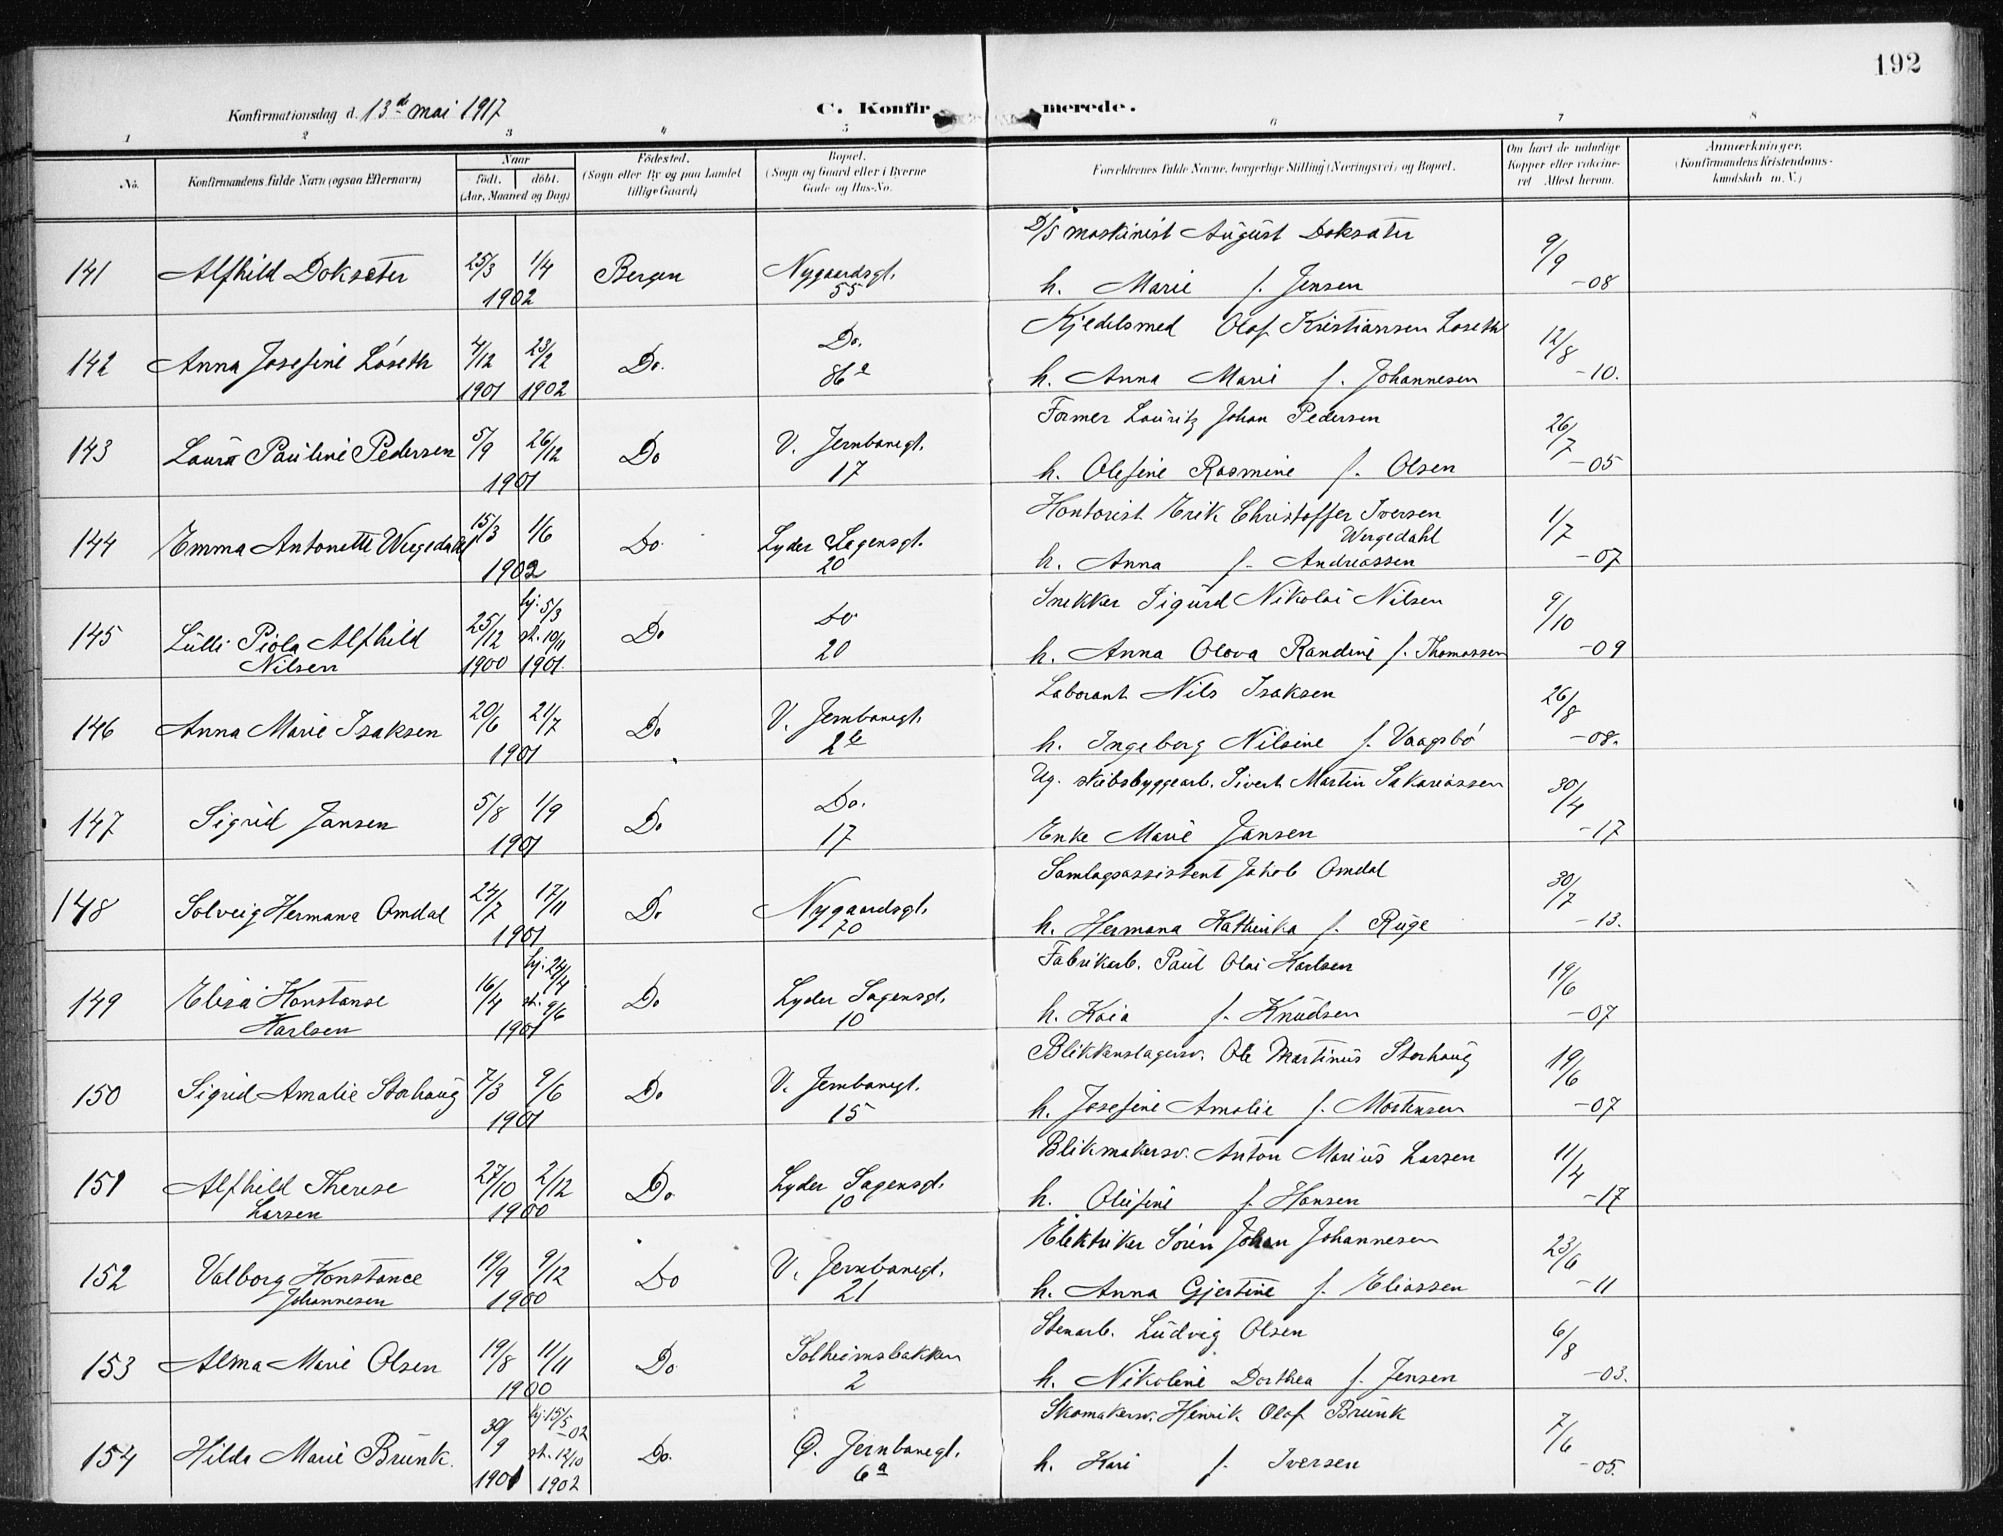 192
Konfirmationsdag d. 13d mai 1917
C. Konfirmerede.
1 2 3 4 5 6 7 8
No. Konfirmandens fulde Navn (ogsaa Efternavn) Naar födt. döbt. (Aar, Maaned og Dag) Födested. (Sogn eller By og paa Landet tillige Gaard) Bopæl. (Sogn og Gaard eller i Byerne Gade og Hus-No. Forældrenes fulde Navne, borgerlige Stilling (Næringsvei) og Bopæl. Om havt de naturlige Kopper eller vaksineret. Attest herom. Anmærkninger. (Konfirmandens Kristendomskundskab m. V.)
D/S maskinist August Doksæter
141 Alfhild Doksæter 25/3 1/4 1902 Bergen Nygaardsgt. 55 9/9 -08
h. Marie f. Jensen
Kjedelsmed Olaf Kristiansen Løseth
142 Anna Josefine Løseth 4/12 1901 23/2 1902 Do. Do. 86a 12/8 -10.
h. Anna Marie f. Johannesen
Former Lauritz Johan Pedersen
143 Laura Pauline Pedersen 5/9 26/12 1901 Do V. Jernbanegt. 17 26/7 -05
h. Olefine Rasmine f. Olsen
Kontorist Erik Christoffer Iversen Wergedahl
144 Emma Antonette Wergedahl 15/3 1/6 1902 Do. Lyder Sagensgt. 20 1/7 -07
h. Anna f. Andreassen
Snekker Sigurd Nikolai Nilsen
145 Lulli Piola Alfhild Nilsen 25/12 1900 hj. 5/3 st. 10/11 1901. Do Do 20 9/10 -09
h. Anna Olova Randine f. Thomassen
Laborant Nils Isaksen
146 Anna Marie Isaksen 20/6 21/7 1901 Do V. Jernbanegt. 2b 26/8 -08.
h. Ingeborg Nilsine f. Vaagsbø
Ug. skibsbyggearb. Sivert Martin Sakariassen
147 Sigrid Jansen 5/8 1/9 1901 Do Do. 17 30/4 -17
Enke Marie Jansen
Samlagsassistent Jakob Omdal
148 Solveig Hermana Omdal 24/7 17/11 1901 Do Nygaardsgt. 70 30/7 -13.
h. Hermana Kathinka f. Ruge
Fabrikarb. Paul Olai Karlsen
149 Elisa Konstanse Karlsen 16/4 hj. 24/4 st. 9/6 1901 Do Lyder Sagensgt. 10 19/6 -07
h. Kaia f. Knudsen
Blikkenslagersv. Ole Martinus Storhaug
150 Sigrid Amalie Storhaug 7/3 9/6 1901 Do V. Jernbanegt. 15 19/6 -07
h. Josefine Amalie f. Mortensen
Blikmakersv. Anton Marius Larsen
151 Alfhild Therese Larsen 27/10 2/12 1900 Do Lyder Sagensgt. 10 11/4 -17
h. Olufine f. Hansen
Elektriker Søren Johan Johannesen
152 Valborg Konstance Johannesen 19/9 9/12 1900 Do V. Jernbanegt. 21 23/6 -11
h. Anna Gjertine f. Eliassen
Stenarb. Ludvig Olsen
153 Alma Marie Olsen 19/8 11/11 1900 Do Solheimsbakken 2 6/8 -03.
h. Nikoline Dorthea f. Jensen
Skomakersv. Henrik Olaf Brunk
154 Hilda Marie Brunk. 30/9 1901 hj. 15/5 -02 st. 12/10 1902 Do. Ø. Jernbanegt. 6a 7/6 -05.
h. Kari f. Iversen